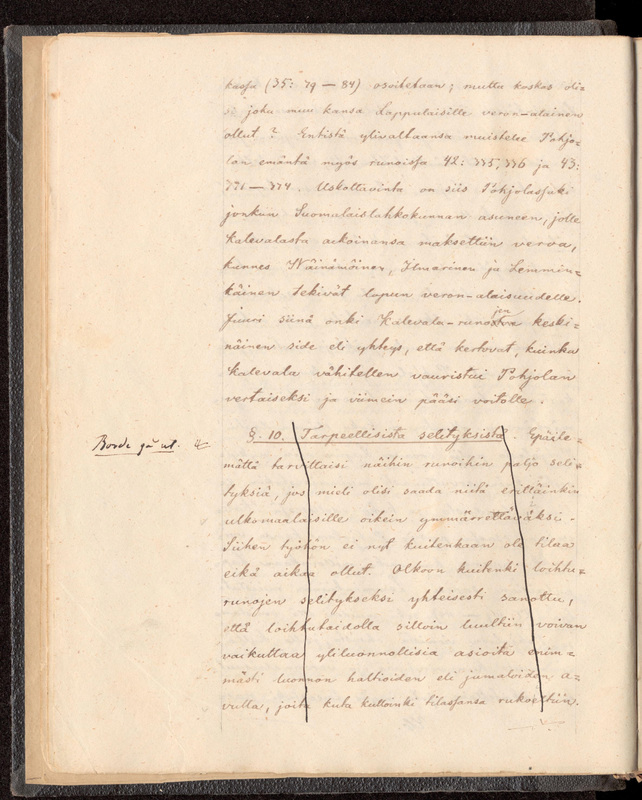 kassa (35: 79 — 84) osoitetaan; mutta koskas oli=
si joku muu kansa Lappalaisille veron-alainen
ollut? Entistä ylivaltaansa muistelee Pohjo=
lan emäntä myös runoissa 42: 335, 336 ja 43:
371 — 374. Uskottavinta on siis Pohjolassaki
jonkun Suomalaislahkokunnan asuneen, jolle
Kalevalasta aikoinansa maksettiin veroa,
kunnes Wäinämöinen, Ilmarinen ja Lemmin=
käinen tekivät lopun veron-alaisuudelle.
Juuri siinä onki Kalevala-runojen keski=
näinen side eli yhteys, että kertovat, kuinka
Kalevala vähitellen vauristui Pohjolan
vertaiseksi ja viimein pääsi voitolle.
Borde gå ut. §. 10. Tarpeellisista selityksistä. Epäile=
mättä tarvittaisi näihin runoihin paljo seli=
tyksiä, jos mieli olisi saada niitä erittäinkin
ulkomaalaisille oikein ymmärrettäväksi.
Siihen työhön ei nyt kuitenkaan ole tilaa
eikä aikaa ollut. Olkoon kuitenki loihtu=
runojen selitykseksi yhteisesti sanottu,
että loihtutaidolla silloin luultiin voivan
vaikuttaa yliluonnollisia asioita enim=
mästi luonnon haltioiden eli jumaloiden a=
vulla, joita kuta kulloinki tilassansa rukoeltiin.